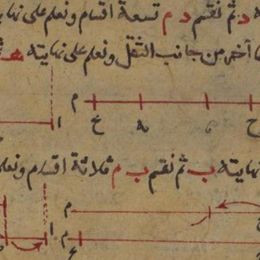 د ثم نقسم د م تسعة اقسام ونعلم على نهاية
آخر من جانب الثقل ونعلم على نهايته
م ح ه ح
ا
نهايته ب ثم نقسم ب م ثلاثة اقسام ونعلم
م
م ا